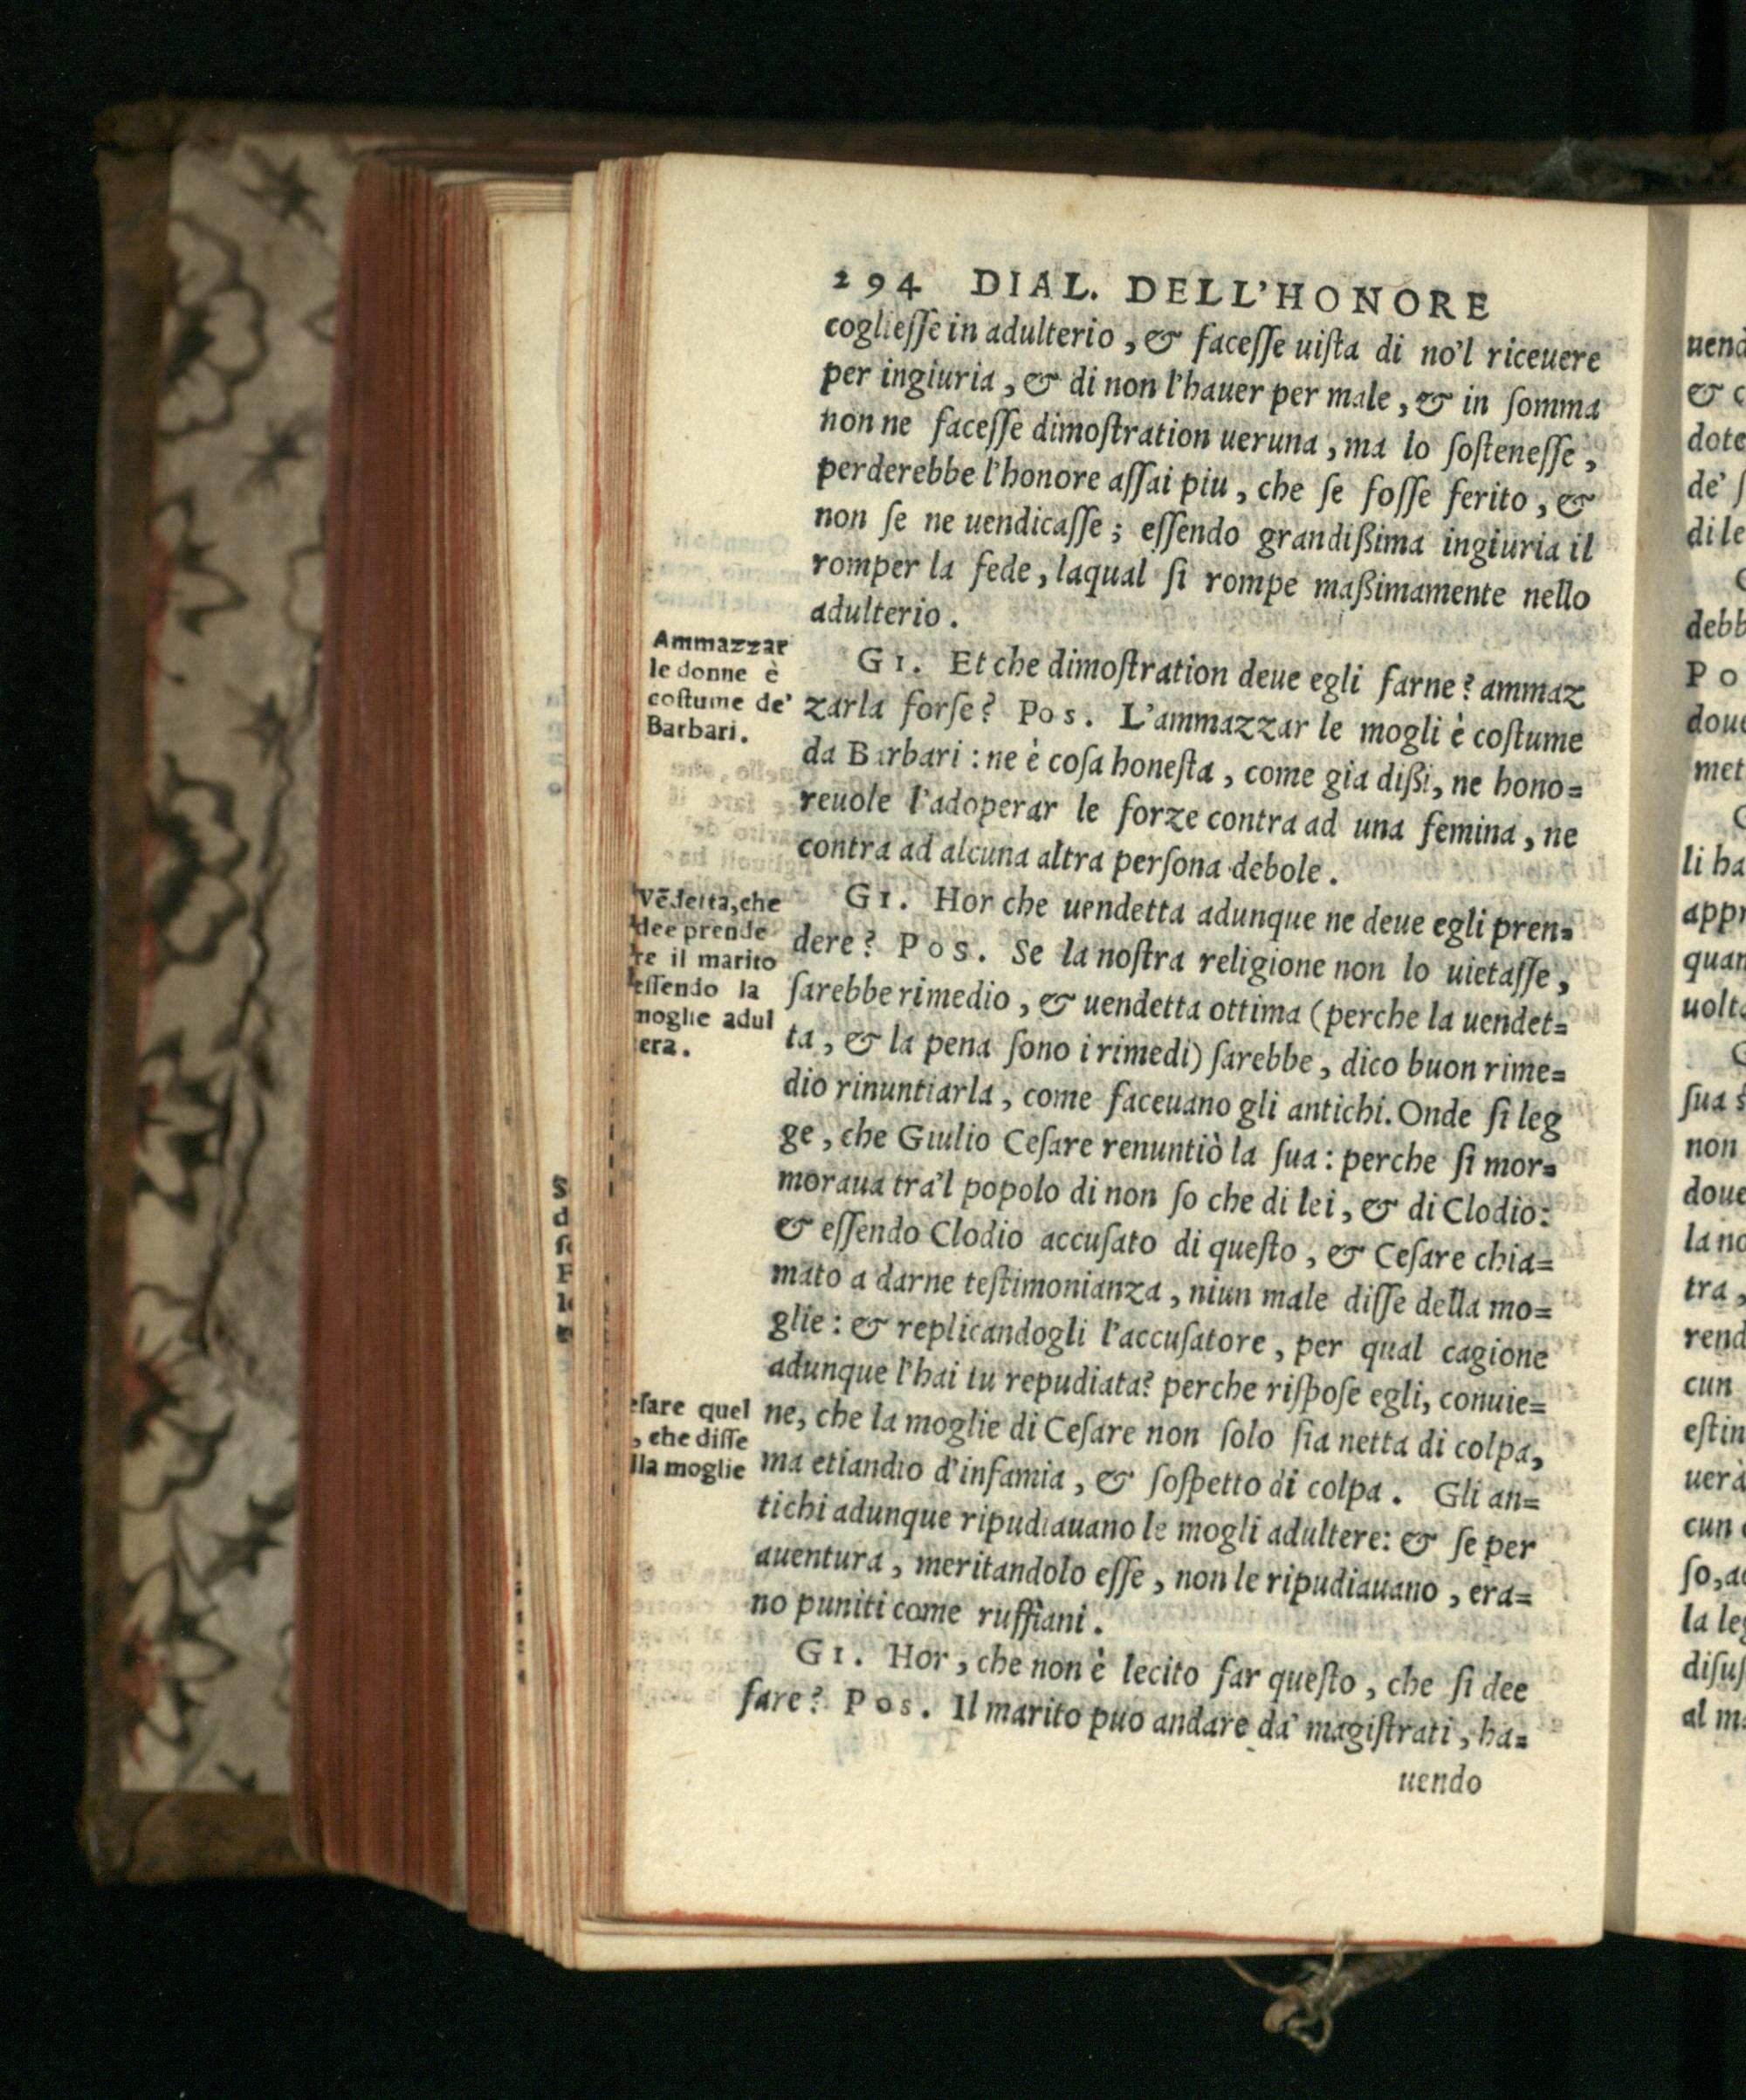 294 DIAL. DELL'HONORE
cogliesse in adulterio, & facesse uista di no'l riceuere
per ingiuria, & di non l'hauer per male, & in somma
non ne facesse dimostration ueruna, ma lo sostenesse,
perderebbe l'honore assai piu, che se fosse ferito, &
non se ne uendicasse; essendo grandißima ingiuria il
romper la fede, laqual si rompe maßimamente nello
adulterio.
Ammazzar
le donne è
costume de'
Barbari.
GI. Et che dimostration deue egli farne? ammaz
zarla forse? Pos. L'ammazzar le mogli è costume
da Barbari: ne è cosa honesta, come gia dißi, ne hono=
reuole l'adoperar le forze contra ad una femina, ne
contra ad alcuna altra persona debole.
Vēdetta, che
dee prende
re il marito
essendo la
moglie adul
era.
GI. Hor che uendetta adunque ne deue egli pren=
dere? Pos. Se la nostra religione non lo uietasse,
sarebbe rimedio, & uendetta ottima (perche la uendet=
ta, & la pena sono i rimedi) sarebbe, dico buon rime=
dio rinuntiarla, come faceuano gli antichi. Onde si leg
ge, che Giulio Cesare renuntiò la sua: perche si mor=
moraua tra'l popolo di non so che di lei, & di Clodio:
& essendo Clodio accusato di questo, & Cesare chia=
mato a darne testimonianza, niun male disse della mo=
glie: & replicandogli l'accusatore, per qual cagione
adunque l'hai tu repudiata? perche rispose egli, conuie=
esare quel
, che disse
lla moglie
ne, che la moglie di Cesare non solo sia netta di colpa,
ma etiandio d'infamia, & sospetto di colpa. Gli an=
tichi adunque ripudiauano le mogli adultere: & se per
auentura, meritandolo esse, non le ripudiauano, era=
no puniti come ruffiani.
GI. Hor, che non è lecito far questo, che si dee
fare? Pos. Il marito puo andare da' magistrati, ha=
uendo
uend
& c
dote
de' s
di le
debb
Po
doue
met
li ha
appr
quan
uolta
sua s
non
doue
la no
tra,
rend
cun
estin
uerà
cun
so, ad
la leg
disus
al ma